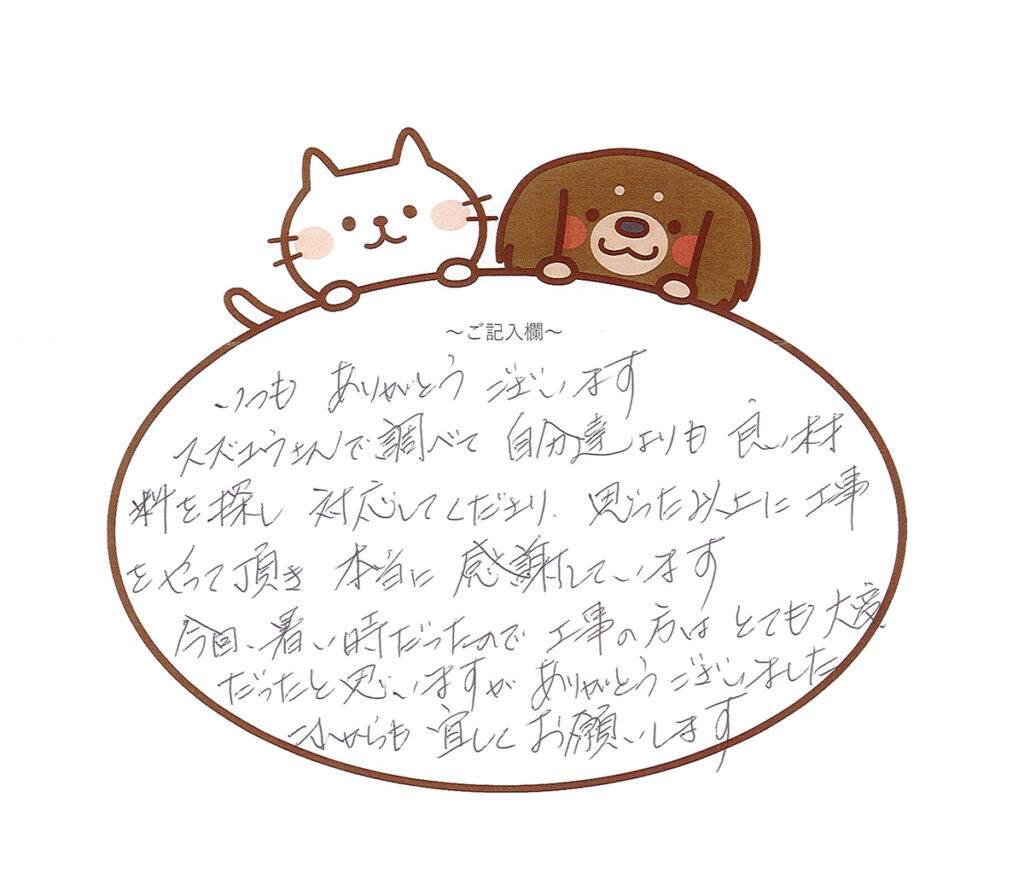 ～ご記入欄～
いつも ありがとう ございます
スズコウさんで調べて 自分達よりも 良い材
料を探し 対応してくださり、思った以上に 工事
をやって頂き 本当に 感謝しています
今回、暑い時だったので 工事の方は とても 大変
だったと思いますが ありがとうございました
これからも 宜しく お願いします